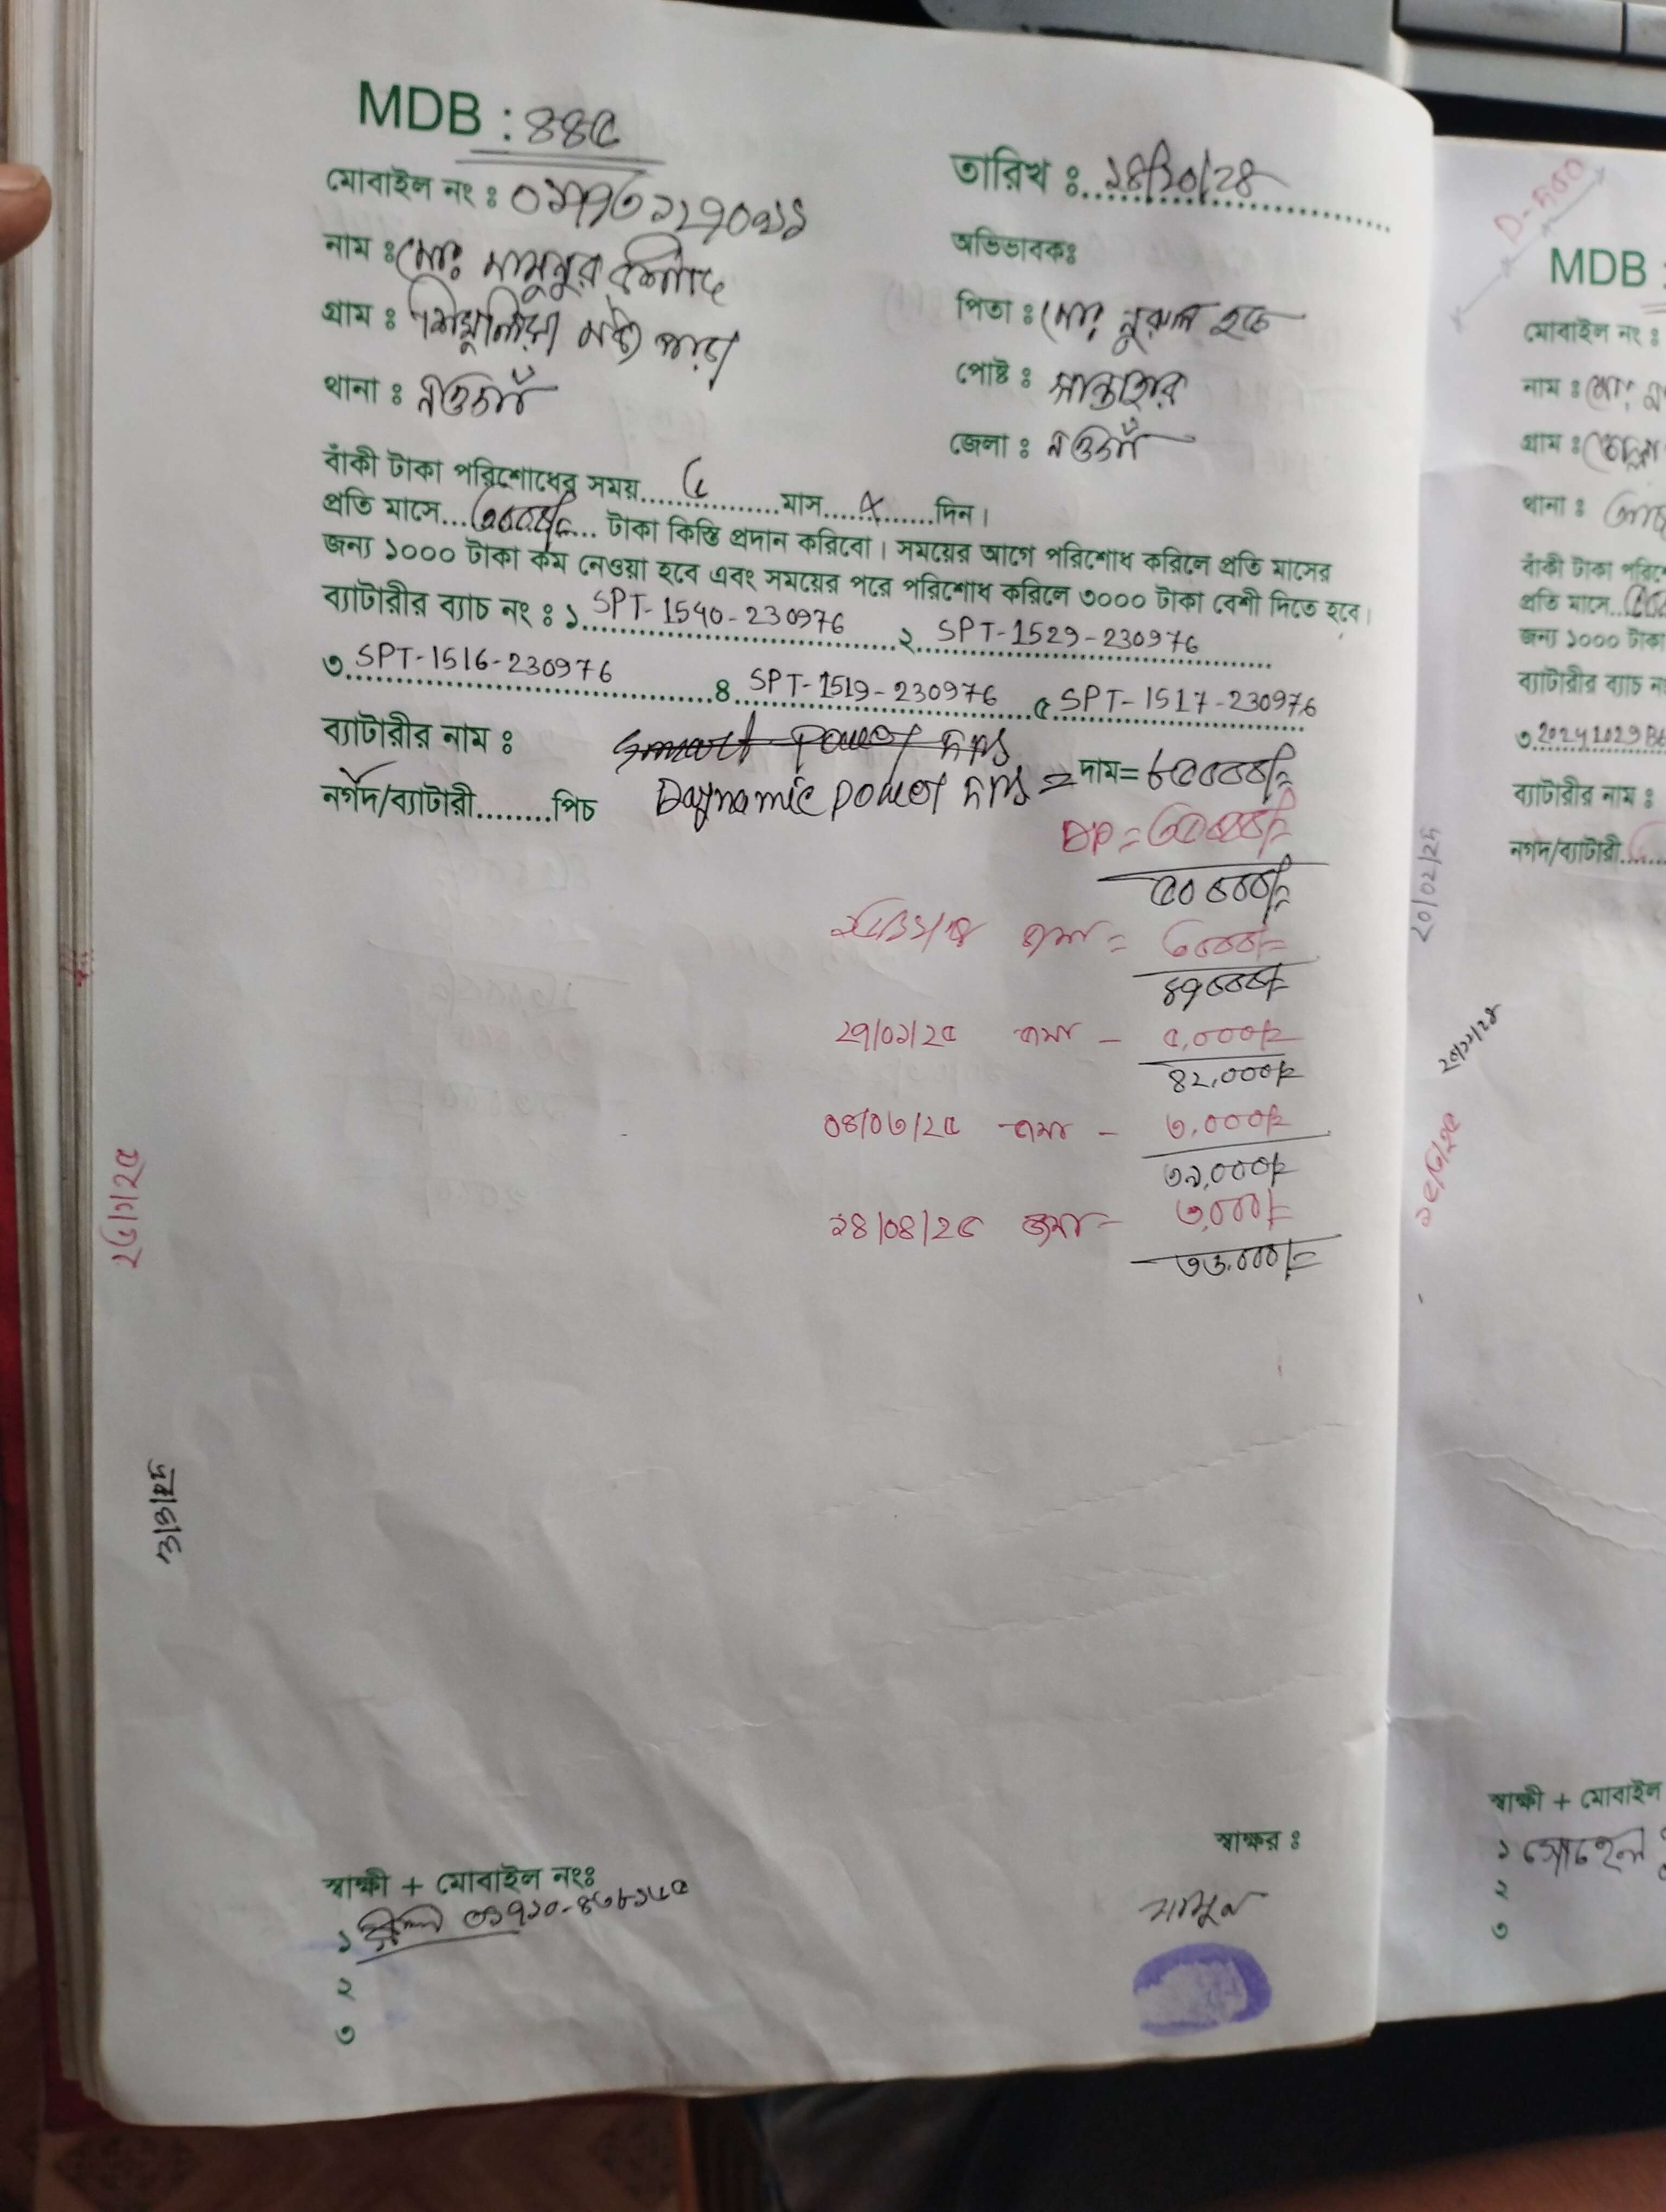 MDB : ৪৪৫
তারিখ ঃ ১৪/১০/২৪
মোবাইল নং ঃ
নাম ঃ মোঃ মামুনুর রশীদ
অভিভাবকঃ
গ্রাম ঃ শিমুলিয়া মন্ডল পাড়া
পিতা ঃ মোঃ নুরুল হক
থানা ঃ নওগাঁ
পোষ্ট ঃ সান্তাহার
জেলা ঃ নওগাঁ
বাঁকী টাকা পরিশোধের সময়..............মাস..............দিন।
প্রতি মাসে............ টাকা কিস্তি প্রদান করিবো। সময়ের আগে পরিশোধ করিলে প্রতি মাসের
জন্য ১০০০ টাকা কম নেওয়া হবে এবং সময়ের পরে পরিশোধ করিলে ৩০০০ টাকা বেশী দিতে হবে।
ব্যাটারীর ব্যাচ নং ঃ ১ SPT-1540-230976 ২ SPT-1529-230976
৩ SPT-1516-230976 ৪ SPT-1519-230976 ৫ SPT-1517-230976
ব্যাটারীর নাম ঃ Smart Power
নগদ/ব্যাটারী.........পিচ Daynamic power = দাম= ৮৫০০০/=
DP = ৩৫০০০/=
৫০০০০/=
জমা = ৩০০০/=
৪৭০০০/=
২৭/০১/২৫ জমা - ৫,০০০/=
৪২,০০০/=
০৪/০৩/২৫ জমা - ৩,০০০/=
৩৯,০০০/=
২৪/০৪/২৫ জমা -
৩৩,০০০/=
স্বাক্ষর ঃ
মামুন
স্বাক্ষী + মোবাইল নংঃ
১
২
৩
D-500
MDB :
মোবাইল নং ঃ
নাম ঃ মোঃ
গ্রাম ঃ
থানা ঃ
বাঁকী টাকা
প্রতি মাসে
জন্য ১০০০ টাকা
ব্যাটারীর ব্যাচ
৩ 20241029
ব্যাটারীর নাম ঃ
নগদ/ব্যাটারী
স্বাক্ষী + মোবাইল
১ সোহেল
২
৩